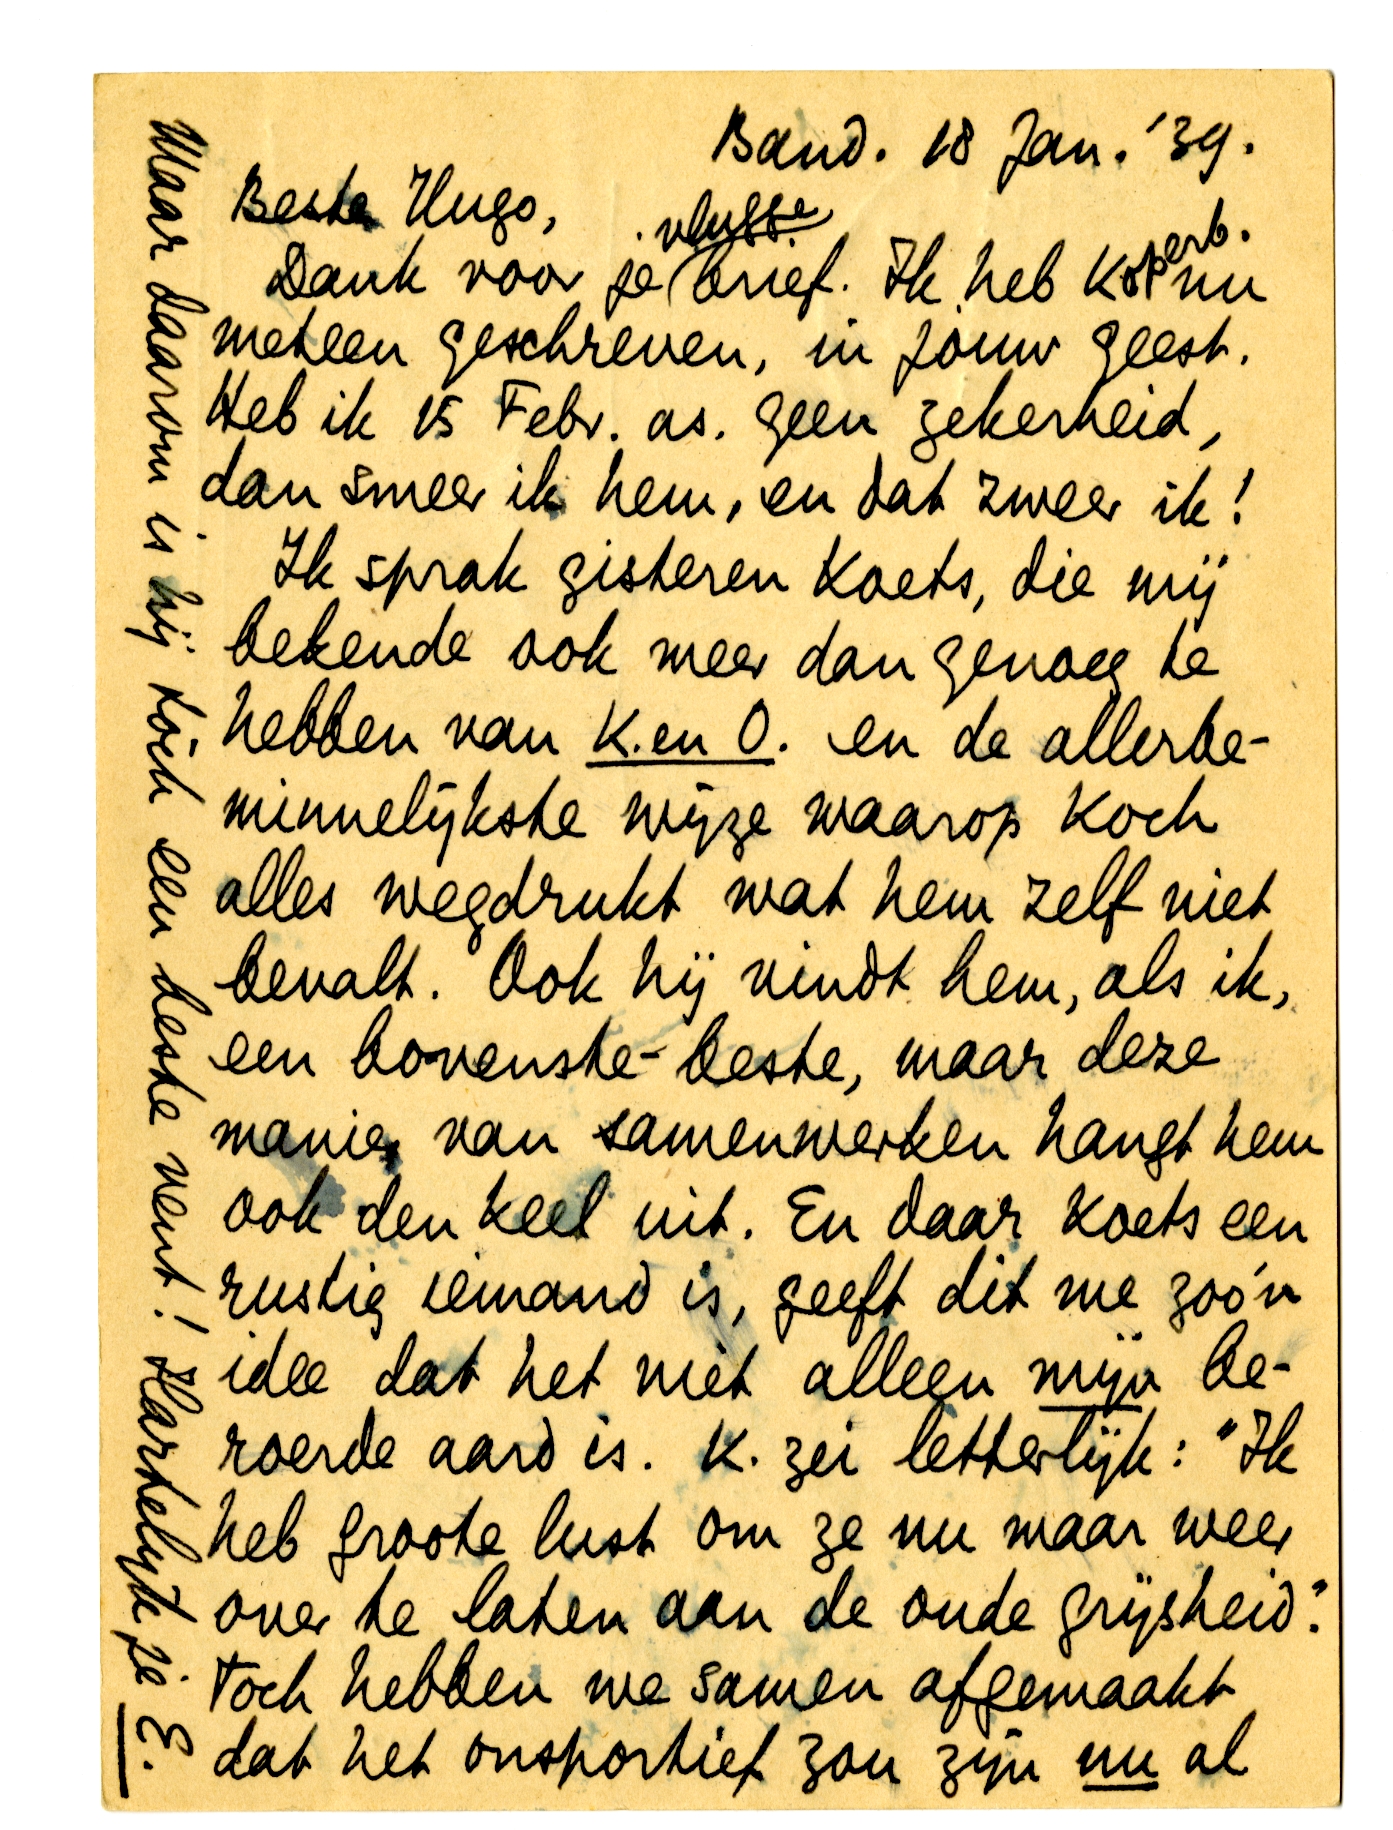 Band. 18 Jan. '39.
Beste Hugo,
Dank voor je vlugge brief. Ik heb Koperb. nu
meteen geschreven, in jouw geest.
Heb ik 15 Febr. as. geen zekerheid,
dan smeer ik hem, en dat zweer ik!
Ik sprak gisteren Koets, die mij
bekende ook meer dan genoeg te
hebben van K. en O. en de allerbe-
minnelijkste wijze waarop Koch
alles wegdrukt wat hem zelf niet
bevalt. Ook hij vindt hem, als ik,
een bovenste-beste, maar deze
manier van samenwerken hangt hem
ook den keel uit. En daar Koets een
rustig iemand is, geeft dit me zoo'n
idee dat het niet alleen mijn be-
roerde aard is. K. zei letterlijk: "Ik
heb groote lust om ze nu maar weer
over te laten aan de oude grijsheid."
Toch hebben we samen afgemaakt
dat het onsportief zou zijn nu al
Maar daarom is hij tòch een beste vent! Hartelijk je E.